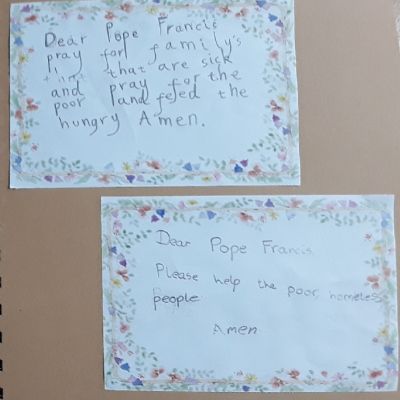 Dear Pope Francis
pray for family's
that are sick
and pray for the
poor and feed the
hungry Amen.
Dear Pope Francis
Please help the poor, homeless
people
Amen